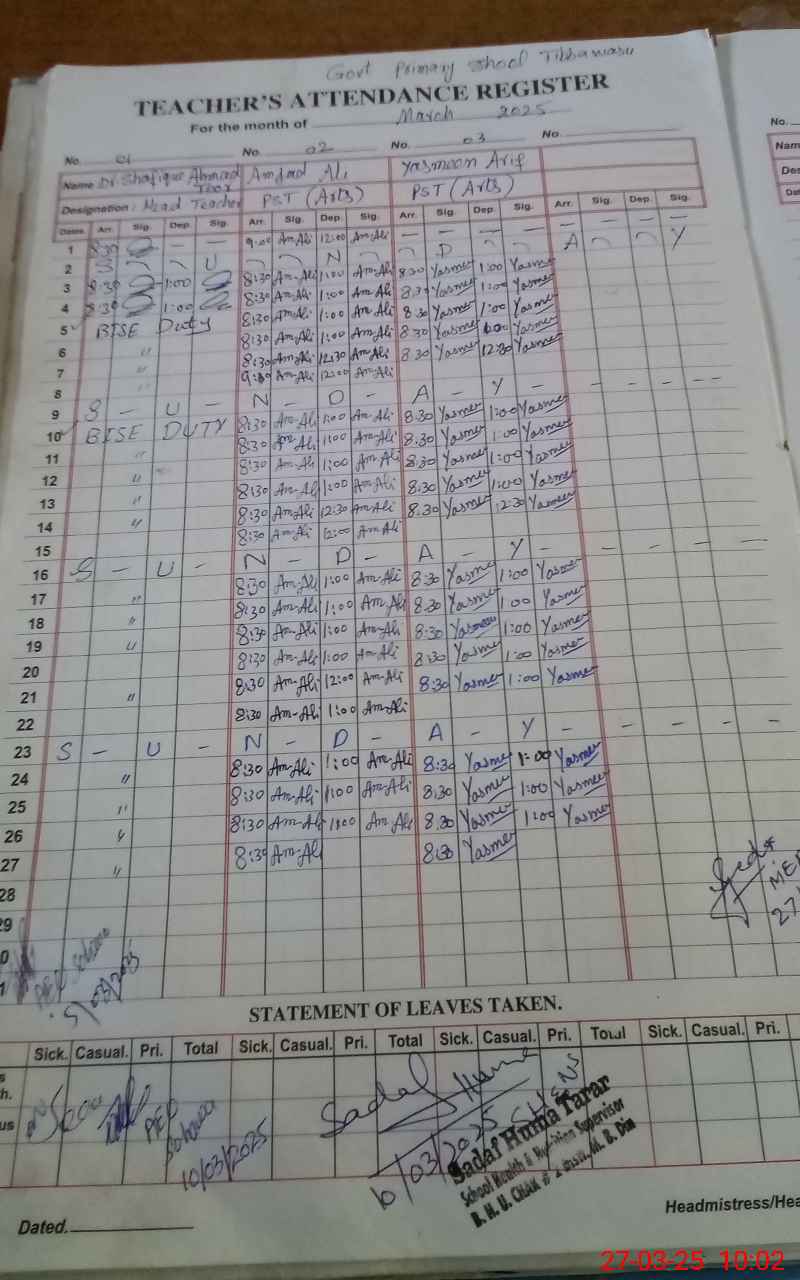 Govt Primary School Tibbawasu
TEACHER'S ATTENDANCE REGISTER
For the month of March 2025
No. 01 No. 02 No. 03 No.
Name Dr. Shafique Ahmad Amjad Ali Yasmeen Arif
Designation: Head Teacher PST (Arts) PST (Arts)
Dates Arr. Sig. Dep. Sig. Arr. Sig. Dep. Sig. Arr. Sig. Dep. Sig. Arr. Sig. Dep. Sig.
1 8:30 — — 9:00 Am-Ali 12:00 Am-Ali — — — — — — — —
2 S U N D A Y
3 8:30 1:00 8:30 Am-Ali 1:00 Am-Ali 8:30 Yasmen 1:00 Yasmen
4 8:30 1:00 8:30 Am-Ali 1:00 Am-Ali 8:30 Yasmen 1:00 Yasmen
5 BISE Duty 8:30 Am-Ali 1:00 Am-Ali 8:30 Yasmen 1:00 Yasmen
6 " 8:30 Am-Ali 1:00 Am-Ali 8:30 Yasmen Yasmen
7 " 8:30 Am-Ali 12:30 Am-Ali 8:30 Yasmen 12:30 Yasmen
8 " Am-Ali 12:00 Am-Ali
9 S — U — N — D — A — Y — — — — —
10 BISE DUTY 8:30 Am-Ali 1:00 Am-Ali 8:30 Yasmen 1:00 Yasmen
11 " 8:30 Am-Ali 1:00 Am-Ali 8:30 Yasmen 1:00 Yasmen
12 " 8:30 Am-Ali 1:00 Am-Ali 8:30 Yasmen 1:00 Yasmen
13 " 8:30 Am-Ali 1:00 Am-Ali 8:30 Yasmen 1:00 Yasmen
14 " 8:30 Am-Ali 12:30 Am-Ali 8:30 Yasmen 12:30 Yasmen
15 8:30 Am-Ali 12:00 Am-Ali
16 S — U — N — D — A — Y — — — — —
17 " 8:30 Am-Ali 1:00 Am-Ali 8:30 Yasmen 1:00 Yasmen
18 " 8:30 Am-Ali 1:00 Am-Ali 8:30 Yasmen 1:00 Yasmen
19 " 8:30 Am-Ali 1:00 Am-Ali 8:30 Yasmen 1:00 Yasmen
20 8:30 Am-Ali 1:00 Am-Ali 8:30 Yasmen 1:00 Yasmen
21 " 8:30 Am-Ali 12:00 Am-Ali 8:30 Yasmen 1:00 Yasmen
22 8:30 Am-Ali 1:00 Am-Ali
23 S — U — N — D — A — Y — — — — —
24 " 8:30 Am-Ali 1:00 Am-Ali 8:30 Yasmen 1:00 Yasmen
25 " 8:30 Am-Ali 1:00 Am-Ali 8:30 Yasmen 1:00 Yasmen
26 " 8:30 Am-Ali 1:00 Am-Ali 8:30 Yasmen 1:00 Yasmen
27 " 8:30 Am-Ali 8:30 Yasmen
28
29
0
1
03/2025
STATEMENT OF LEAVES TAKEN.
Sick. Casual. Pri. Total Sick. Casual. Pri. Total Sick. Casual. Pri. Total Sick. Casual. Pri.
Sadaf Huma
10/03/2025
10/03/2025
Sadaf Huma Tarar
School Health & Nutrition Supervisor
Dated.
Headmistress/Hea
No.
Nam
Des
Dat
27-03-25 10:02